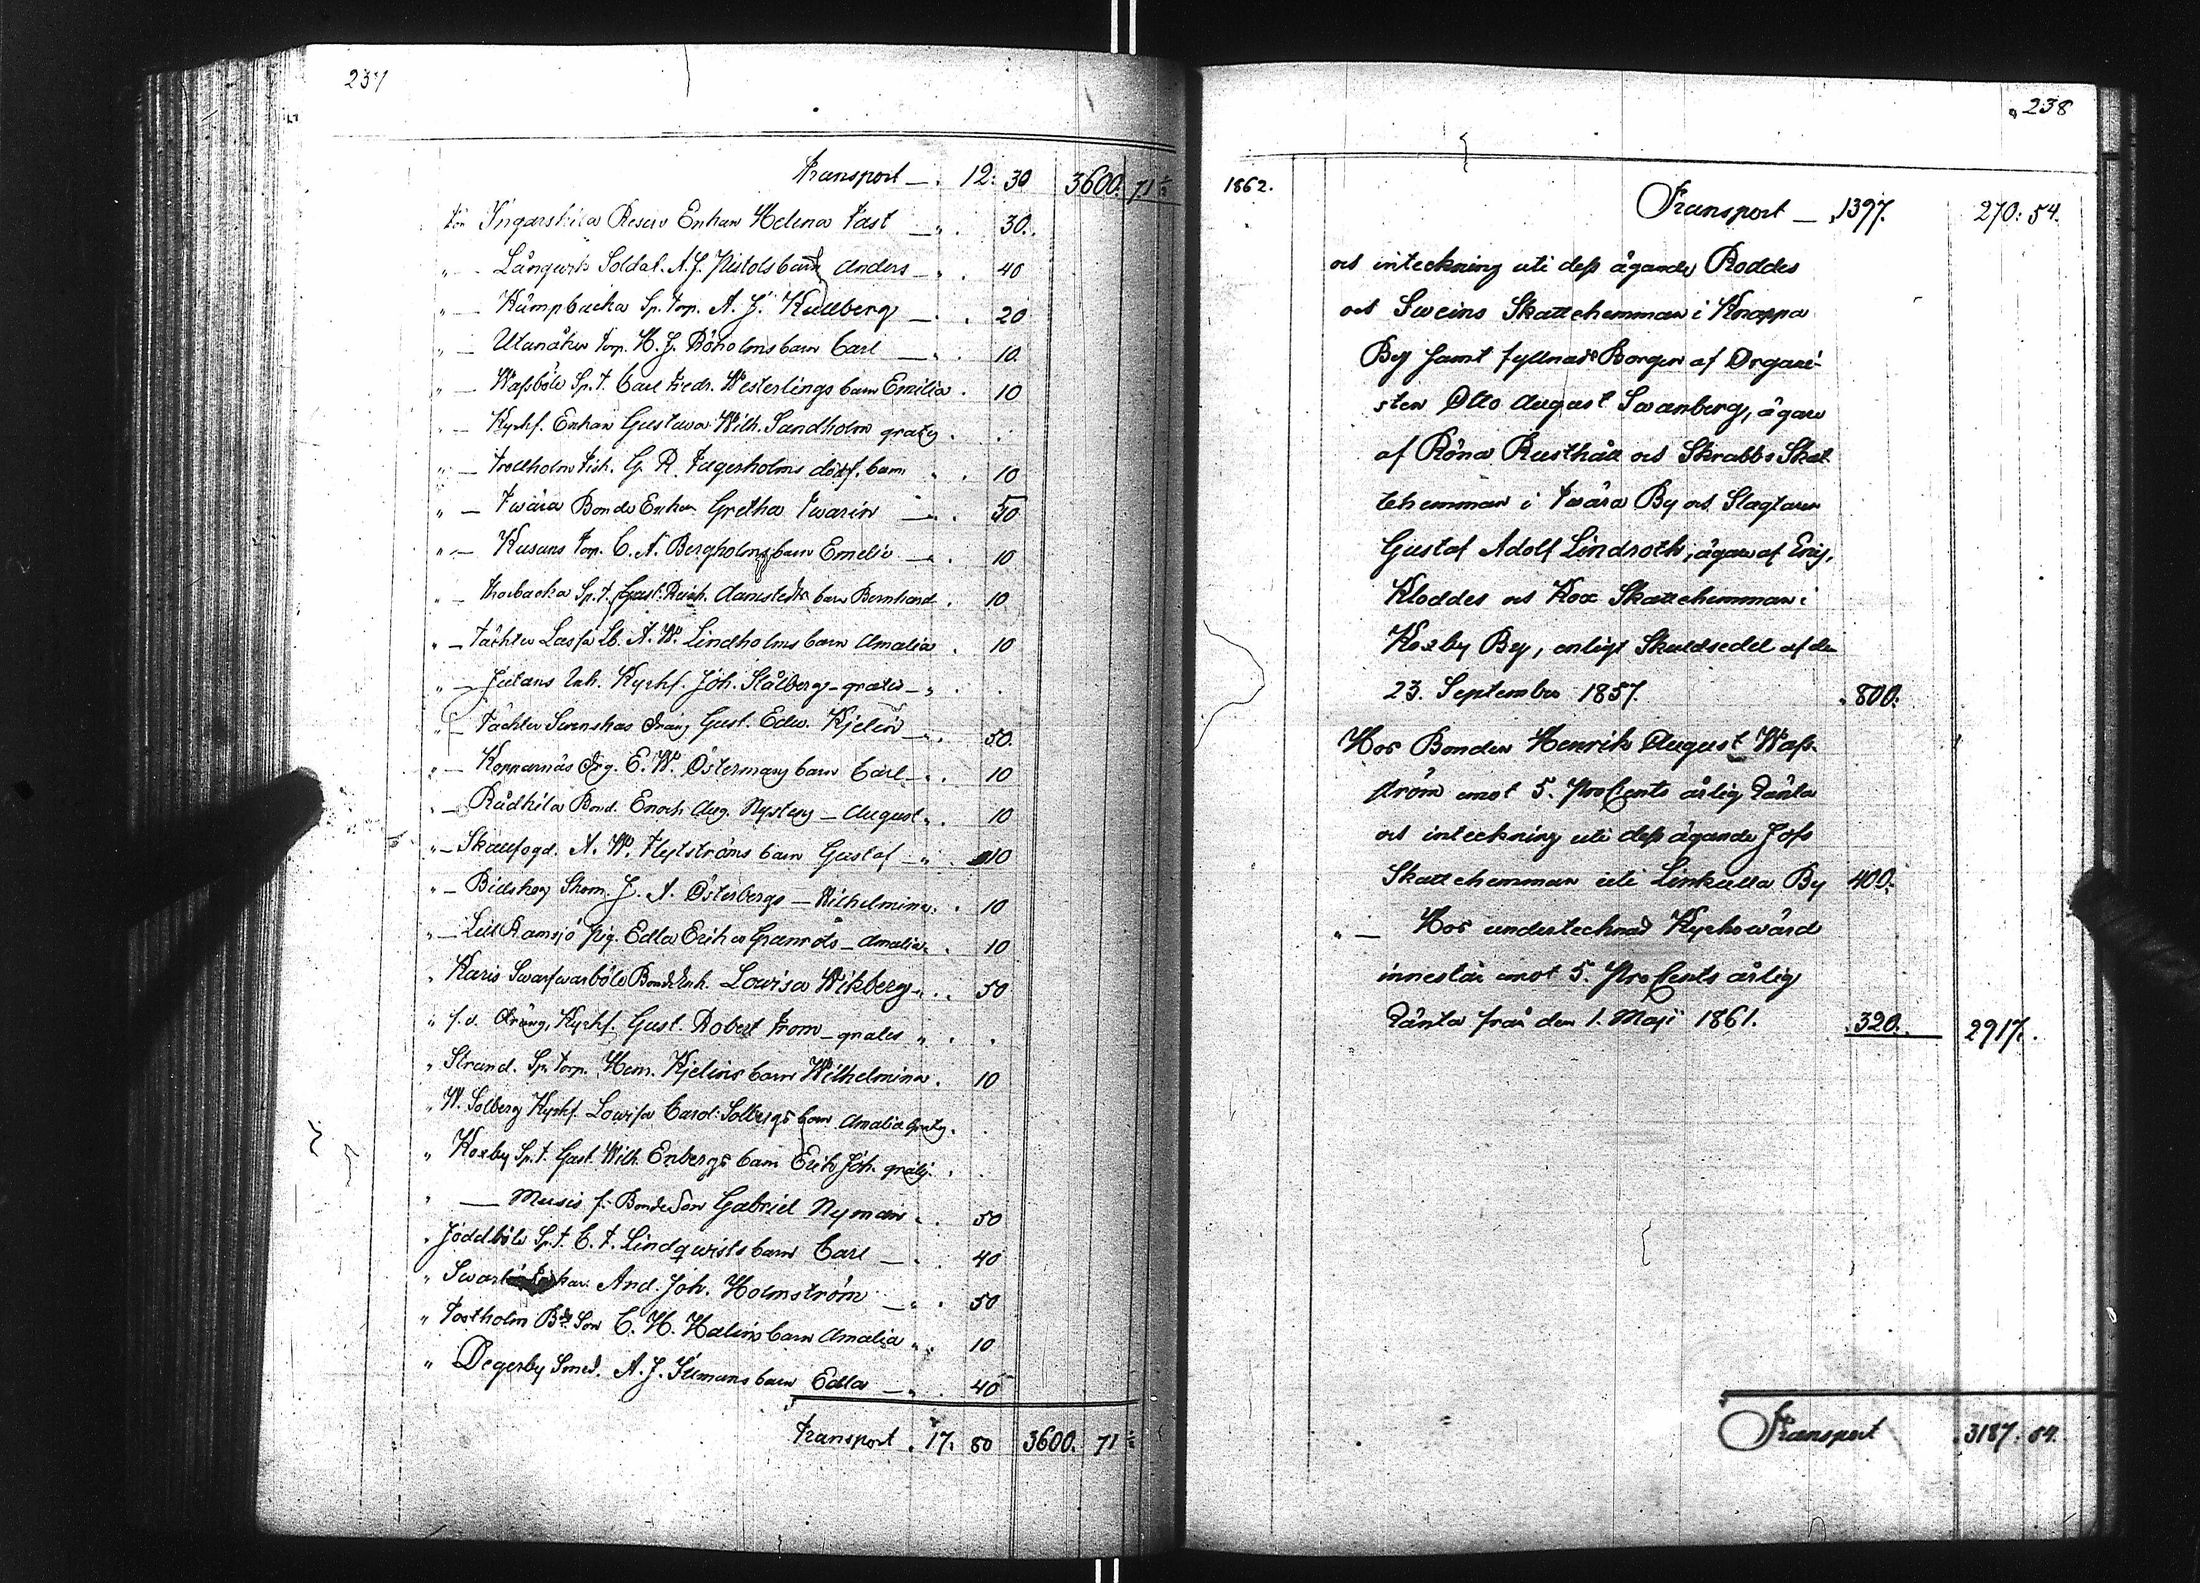 237
Transport — . 12. 30 3600. 71 ½
för Ingarskila Reserv Enkan Helena Fast — " . 30.
" — Långwik Soldat. A. J. Pistols barn Anders — " . 40
" — Kämpbacka Sp. torp. A. J. Kullberg — . 20
" — Utanåker torp. H. J. Röholms barn Carl — " . 10.
" — Wassböle Sp. t. Carl Fredr. Westerlings barn Emilia . 10
" — Kyrkf. Enkan Gustava Wilh. Sandholm gratis . .
" — Trollholm Fisk. G. R. Fagerholms dödf. barn " . 10
" — Twära Bonde Enkan Gretha Twarin — " . 50
" — Kusans torp. C. A. Bergholms barn Emelie — . 10
" — Sp. t. Gust. Reinh. barn Bernhard . 10
" — Täckter Lassas Lb. A. W. Lindholms barn Amalia . 10
" — Jutans Inh. Kyrkf. Joh. Stålberg — gratis — " . .
" — Täckter Swenskas dräng Gust. Edw. Kjelin — " . 50.
" — Kopparnäs drg. E. W. Östermans barn Carl — " . 10
" — Rådkila Bond. Enoch Aug. Nysten — August " . 10
" — Skallfogd. A. W. Flytströms barn Gustaf — " . 10
" — Bidskog Skom. J. A. Österbergs — Wilhelmina . . 10
" — Lill Ramsjö Pig. Edla Erika Granrots — Amalia . 10
" Karis Swarfwarböle Bonde Enk. Lowisa Wikberg — " . . 50
" f. d. dräng, Kyrkf. Gust. Robert From — gratis " . .
" Strand. Sp. torp. Hem. Kjelins barn Wilhelmina . 10
" W. Solberg Kyrkf. Lowisa Carol. Solbergs barn Amalia gratis . .
" Koxby Sp. t. Gust. Wilh. Enbergs barn Erik Joh. gratis . .
" — Musis f. Bonde Son Gabriel Nyman " . 50
" Joddböle Sp. t. C. F. Lindqwists barn Carl — " . 40
" And. Joh. Holmström — " . 50
" Tostholm Bde Son C. H. Halins barn Amalia " . 10
" Degerby Smed. A. J. barn Edla — " . 40
Transport . 17. 80 3600. 71 ½
238
1862.
Transport — 1397. 270. 54.
och inteckning uti dess ägande Roddes
och Sweins Skattehemman i Knappa
By samt fyllnads Borgen af Organi-
sten Otto August Swanberg, ägare
af Röna Rusthåll och Skrabbs Skat-
tehemman i Twära By och Slagtaren
Gustaf Adolf Lindroth, ägare af Eris,
Kloddes och Kox Skattehemman i
Koxby By, enligt Skuldsedel af den
23. September 1857. 800.
Hos Bonden Henrik August Wass-
ström emot 5. ProCents årlig Ränta
och inteckning uti dess ägande Joss
Skattehemman uti Linkulla By 400.
" — Hos undertecknad Kyrkowärd
innestår emot 5. ProCents årlig
Ränta från den 1. Maji 1861. 320. 2917.
Transport 3187. 54.